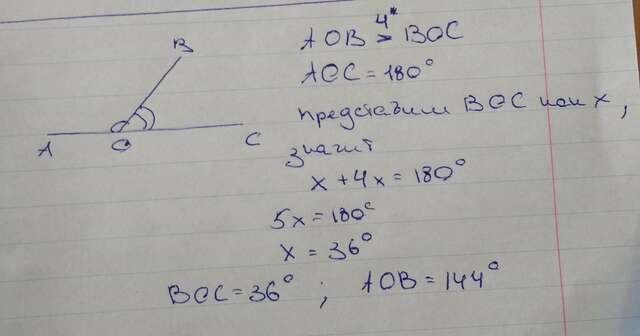 B
A
O
C
4*
AOB > BOC
AOC = 180°
представим BOC как x,
значит
x + 4x = 180°
5x = 180°
x = 36°
BOC = 36° ; AOB = 144°